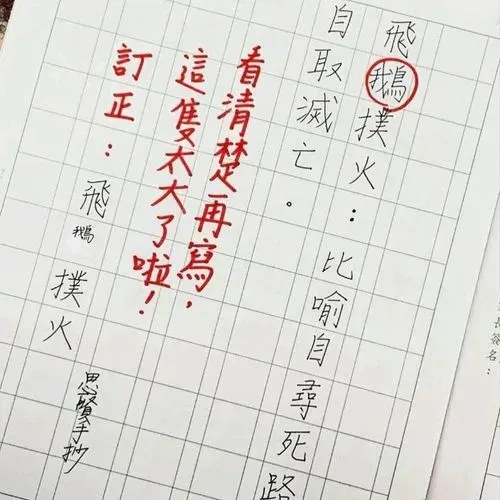 飛鵝撲火：比喻自尋死路
自取滅亡。
看清楚再寫，
這隻太大了啦！
訂正：飛鵝撲火
思賢手抄
長簽名：